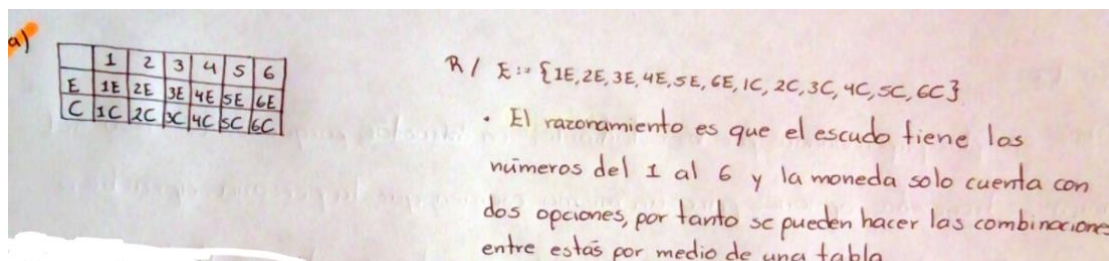 a)
1 2 3 4 5 6
E 1E 2E 3E 4E 5E 6E
C 1C 2C 3C 4C 5C 6C
R / E:= {1E, 2E, 3E, 4E, 5E, 6E, 1C, 2C, 3C, 4C, 5C, 6C}
• El razonamiento es que el escudo tiene los
números del 1 al 6 y la moneda solo cuenta con
dos opciones, por tanto se pueden hacer las combinaciones
entre estás por medio de una tabla